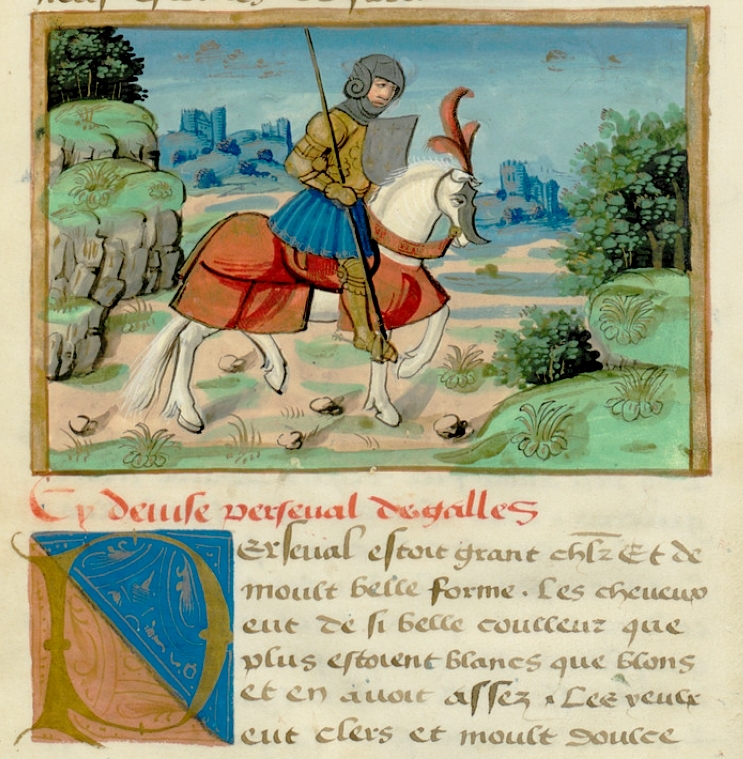 Cy deuise perseual de galles
Perseual estoit grant chlr Et de
moult belle forme. Les cheueux
eut de si belle couleur que
plus estoient blancs que blons
et en auoit assez. Les yeulx
eut clers et moult doulce